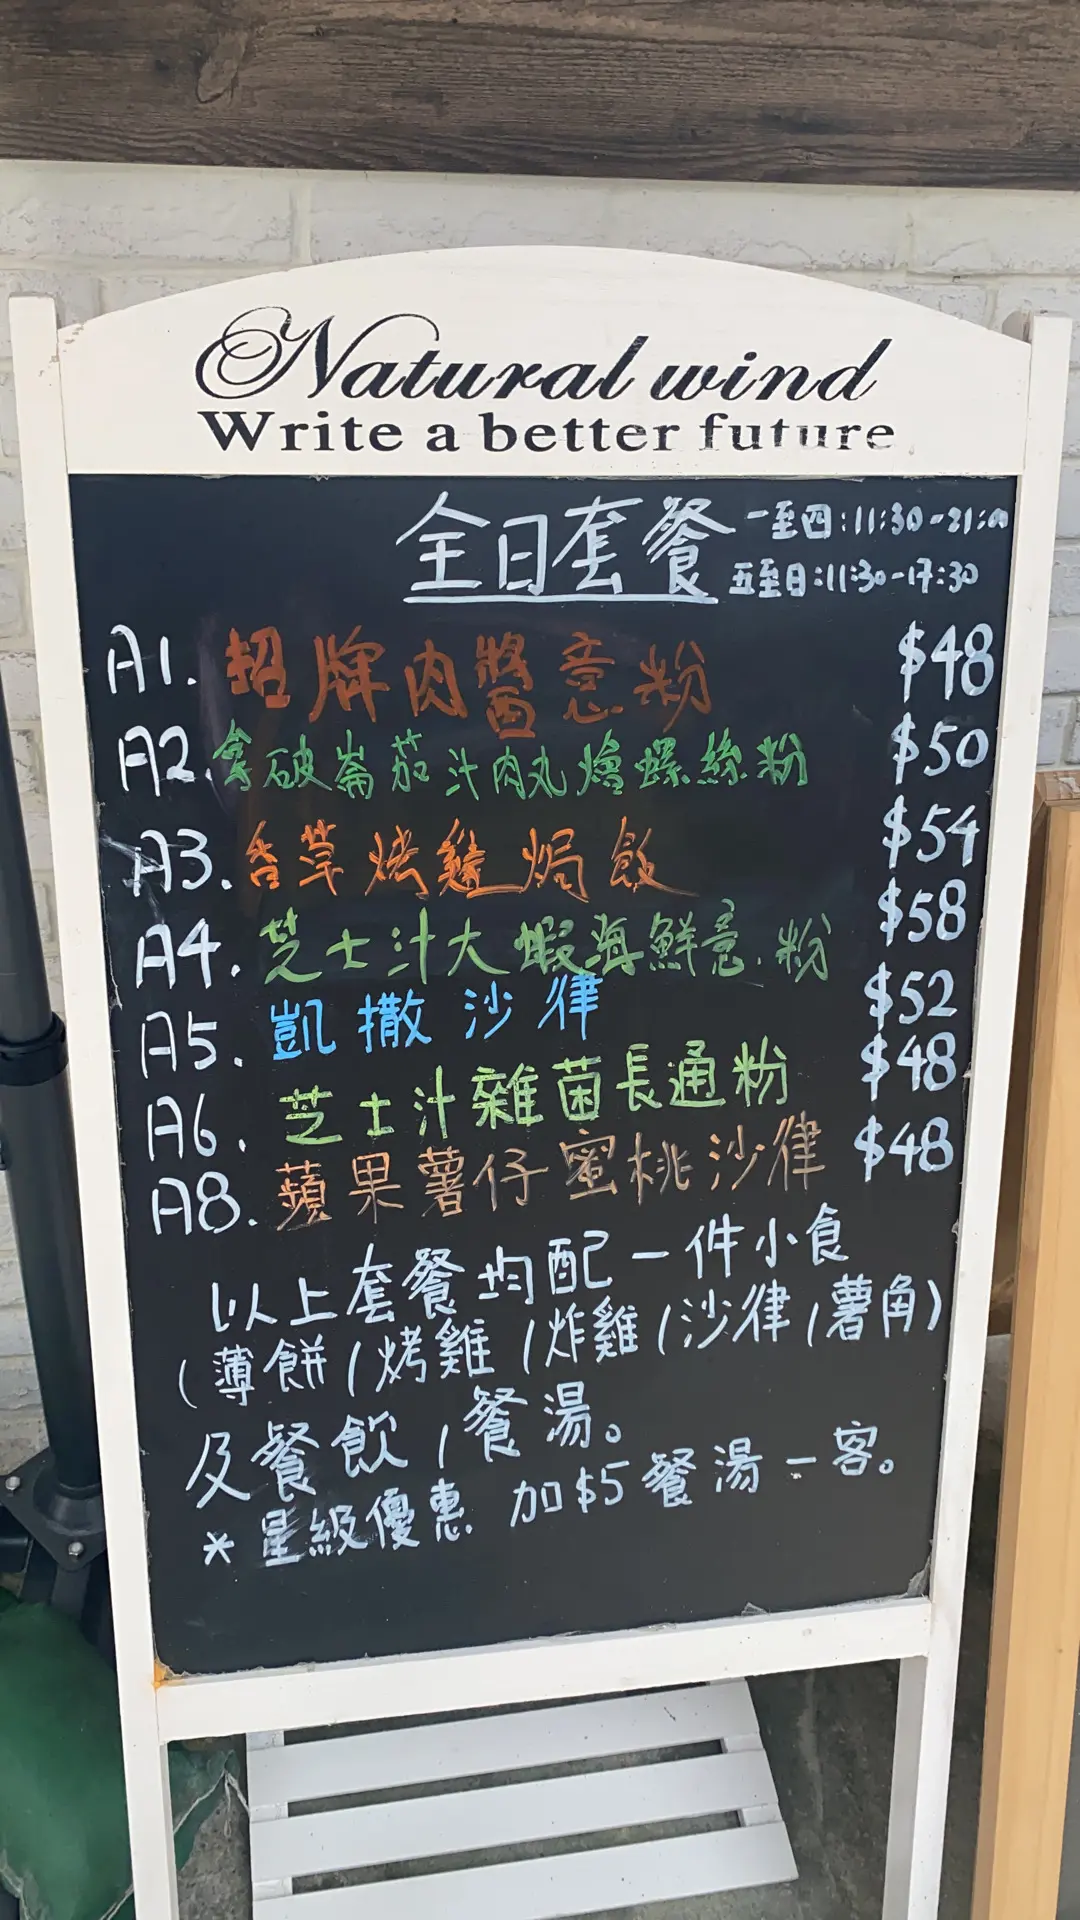 Natural wind
Write a better future
全日套餐 一至四:11:30-21:00
五至日:11:30-17:30
A1. 招牌肉醬意粉 $48
A2. 拿破崙茄汁肉丸燴螺絲粉 $50
A3. 香草烤雞焗飯 $54
A4. 芝士汁大蝦海鮮意粉 $58
A5. 凱撒沙律 $52
A6. 芝士汁雜菌長通粉 $48
A8. 蘋果薯仔蜜桃沙律 $48
以上套餐均配一件小食
(薄餅/烤雞/炸雞/沙律/薯角)
及餐飲/餐湯。
*星級優惠 加$5餐湯一客。